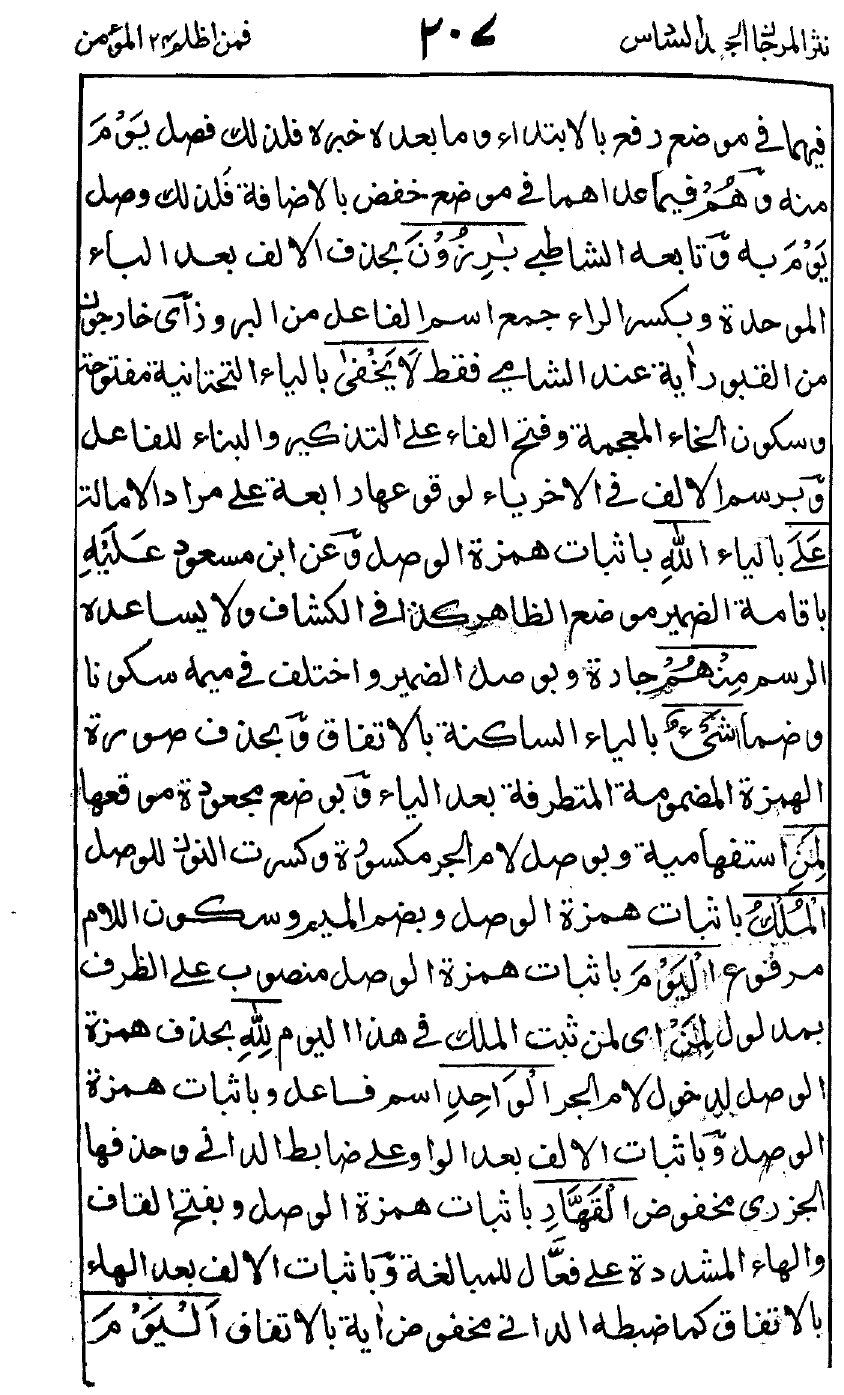 نثر المرجان الجلد السادس ٢٠٧ فمن اظلم ٢٤ المؤمن
فيهما في موضع رفع بالابتداء وما بعده خبره فلذلك فصل يَوْمَ
منه وَّهُمْ فيما عداهما في موضع خفض بالاضافة فلذلك وصل
يَوْمَ به وّتابعه الشاطبي بٰرِزُوْنَ بحذف الالف بعد الباء
الموحدة وبكسر الراء جمع اسم الفاعل من البروز اٰى خارجون
من القبور اٰية عند الشامي فقط لَا يَخْفٰى بالياء التحتانية مفتوحة
وسكون الخاء المعجمة وفتح الفاء على التذكير والبناء للفاعل
وّبرسم الالف في الاخر ياء لوقوعها رابعة على مراد الامالة
عَلَى بالياء اللّٰهِ باثبات همزة الوصل وّعن ابن مسعود عَلَيْهِ
باقامة الضمير موضع الظاهر كذا في الكشاف ولا يساعده
الرسم مِنْهُمْ جادة وبوصل الضمير واختلف في ميمه سكونا
وضما شَيْءٌ بالياء الساكنة بالاتفاق وّبحذف صورة
الهمزة المضمومة المتطرفة بعد الياء وّبوضع مجعودة موقعها
لِمَنِ استفهامية وبوصل لام الجر مكسورة وكسرت النون للوصل
الْمُلْكُ باثبات همزة الوصل وبضم الميم وسكون اللام
مرفوع الْيَوْمَ باثبات همزة الوصل منصوب على الظرف
بمدلول لِمَنْ اى لمن ثبت الملك في هذا اليوم لِلّٰهِ بحذف همزة
الوصل لدخول لام الجر الْوَاحِدِ اسم فاعل وباثبات همزة
الوصل وّباثبات الالف بعد الواو على ضابط الداني وحذفها
الجزري مخفوض الْقَهَّارِ باثبات همزة الوصل وبفتح القاف
والهاء المشددة على فعَّال للمبالغة وّباثبات الالف بعد الهاء
بالاتفاق كما ضبطه الداني مخفوض اٰية بالاتفاق اَلْيَوْمَ